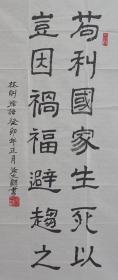 苟利國家生死以
豈因禍福避趨之
林則徐語癸卯年正月書